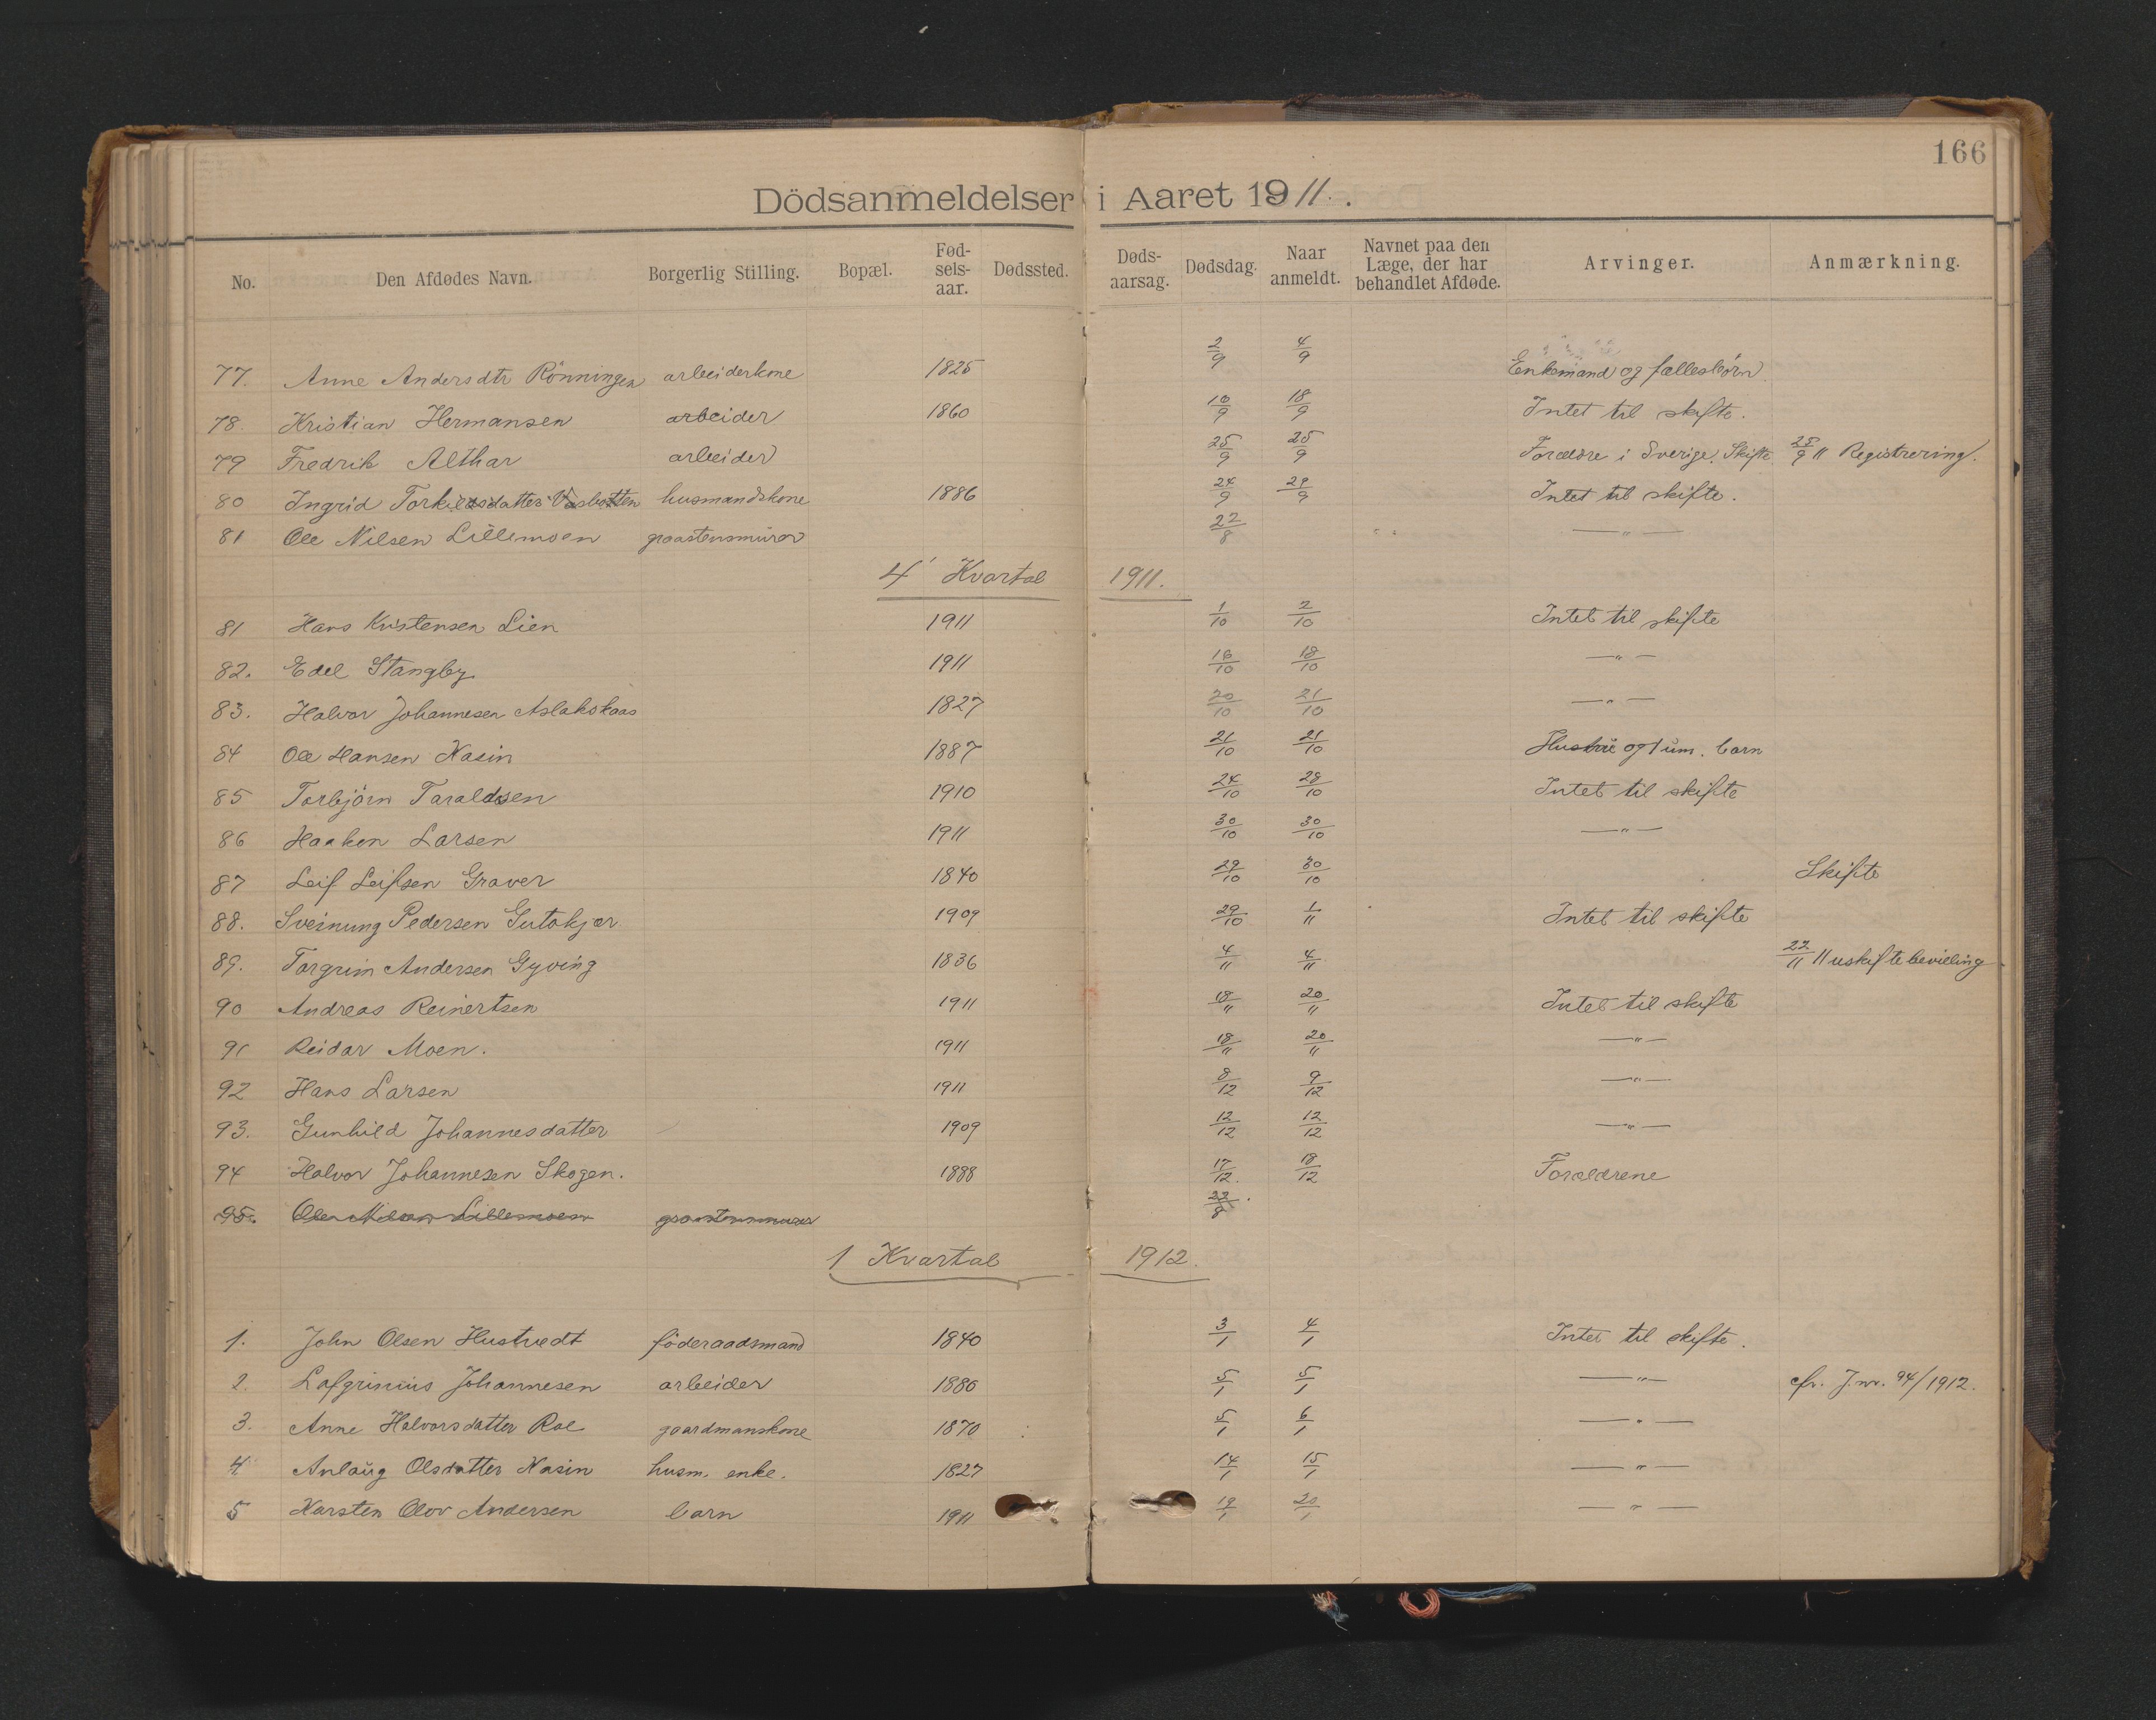 166
Dödsanmeldelser i Aaret 1911.
No. Den Afdødes Navn. Borgerlig Stilling. Bopæl. Fød-sels-aar. Dødssted. Døds-aarsag. Dødsdag. Naar anmeldt. Navnet paa den Læge, der har behandlet Afdøde. Arvinger. Anmærkning.
77. Anne Andersdtr Rönningen arbeiderkone 1825 2/9 4/9 Enkemand og fællesbörn
78. Kristian Hermansen arbeider 1860 10/9 18/9 Intet til skifte.
79 Fredrik Althar arbeider 25/9 25/9 Forældre i Sverige. Skifte 25/9 11 Registrering.
80 Ingrid husmandskone 1886 24/9 29/9 Intet til skifte.
81 Ole Nilsen Lillemoen graastensmurer 22/8 —"—
4' Kvartal 1911.
81 Hans Kristensen Lien 1911 1/10 2/10 Intet til skifte
82. Edel Stangby 1911 16/10 18/10 —"—
83. Halvor Johannesen Aslakskaas 1827 20/10 21/10 —"—
84 Ole Hansen Nasin 1887 21/10 21/10 Hustru og 1 um. barn
85 Torbjörn Taraldsen 1910 24/10 28/10 Intet til skifte
86 Haaken Larsen 1911 30/10 30/10 —"—
87 Leif Leifsen Graver 1840 29/10 30/10 Skifte
88. Sveinung Pedersen Gutokjær 1909 29/10 1/11 Intet til skifte
89. Torgrim Andersen Gyving 1836 4/11 4/11 22/11 11 uskiftebevilling
90 Andreas Reinertsen 1911 18/11 20/11 Intet til skifte
91 Reidar Moen. 1911 18/11 20/11 —"—
92 Hans Larsen 1911 8/12 9/12 —"—
93. Gunhild Johannesdatter 1909 12/12 12/12 —"—
94 Halvor Johannesen Skogen. 1888 17/12. 18/12 Forældrene
95. Ole Nilsen Lillemoen graastensmurer 22/8.
1 Kvartal 1912.
1. John Olsen Hustvedt föderaadsmand 1840 3/1 4/1 Intet til skifte.
2. Lafgrinius Johannesen arbeider 1886 5/1 5/1 —"— cfr. J.nr. 94/1912.
3. Anne Halvorsdatter Roe gaardmanskone 1870 5/1 6/1 —"—
4. Anlaug Olsdatter Nasin husm. enke. 1827 14/1 15/1 —"—
5 Karsten Olov Andersen barn 1911 19/1 20/1 —"—